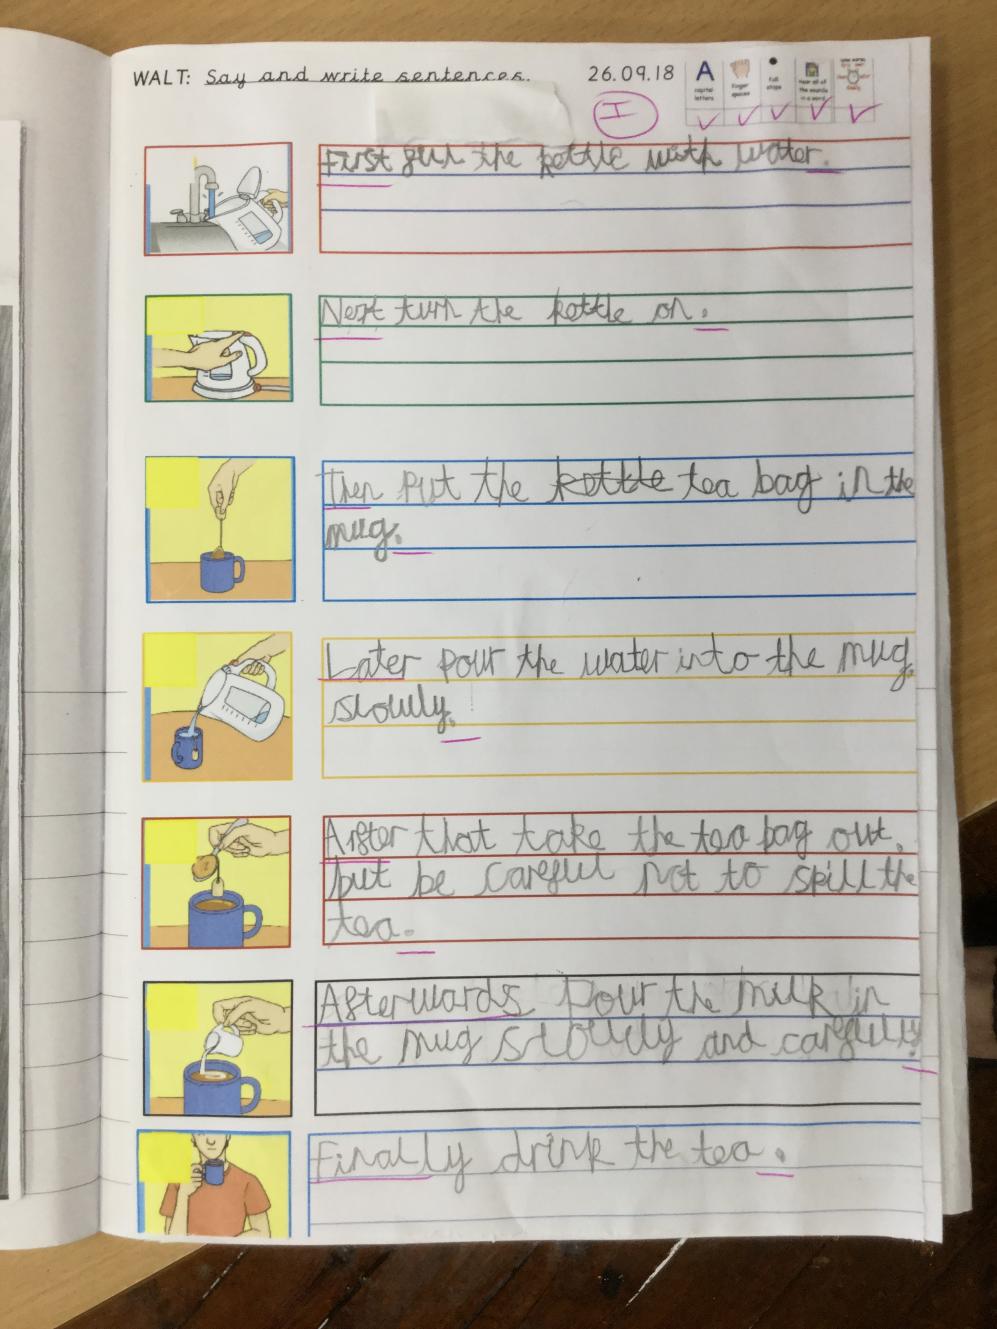 WALT: Say and write sentences. 26.09.18
A
capital letters
finger spaces
full stops
Hear all of the sounds in a word
I
First fill the kettle with water.
Next turn the kettle on.
Then put the kettle tea bag in the
mug.
Later pour the water into the mug
slowly.
After that take the tea bag out,
but be careful not to spill the
tea.
Afterwards pour the milk in
the mug slowly and carefully.
Finally drink the tea.